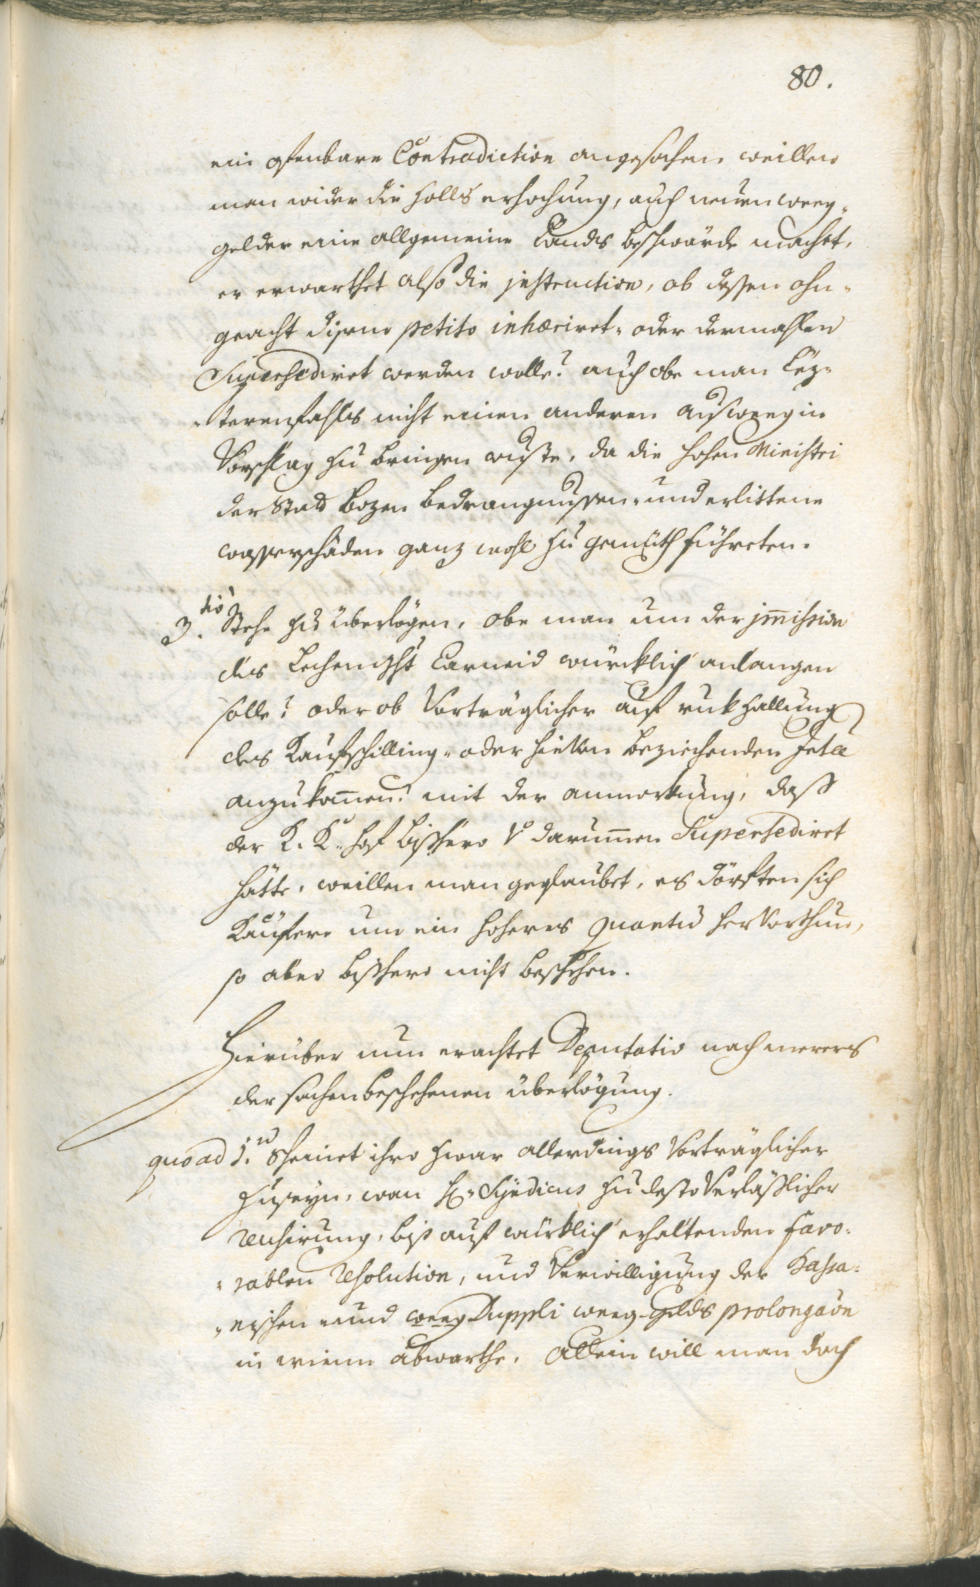 80.
ein ofenbare Contradiction angesechen, weillen
man wider die Zolls erhochung, auch neüen weeg-
gelder eine allgemeine Lands beschwärde machet,
er erwarthet also die instruction, ob dessen ohn-
geacht disem petito inhæriret- oder dermahlen
Supersediret werden wolle? auch obe man lez-
terenfahls nicht einen anderen ausweeg in
Vorschlag zu bringen wuste, da die hohen Ministri
der Stad Bozen bedrangnussen- und erlittene
wasserschäden ganz wohl zu gemüth führeten.
3.tio Stehe zu überlögen, obe man um der immission
des Lechengsht Carneid würcklich anlangen
solle? oder ob Vorträglicher auf ruk zallung
des Kaufschilling- oder hievon beziehenden Inte
anzukommen? mit der anmerkung, dass
der K: K: Hof bisshero darummen Supersediret
hätte, weillen man geglaubet, es dörften sich
Kaufere um ein hoheres quantu hervorthun,
so aber bisshero nicht beschehen.
Hierüber nun erachtet Deputatio nach mererer
der sachen beschehenen überlögung.
quo ad 1.m Scheinet ihro zwar allerdings Vorträglicher
zuseyn, wan H: Syndicus zu desto Verlässlicher
reusirung, biss auf würklich erhaltenden favo-
rablen resolution, und Verwilligung der Bassa-
neischen- und weeg Duppli weeg-gelds prolongaõn
in wienn abwarthe. Allein will man doch